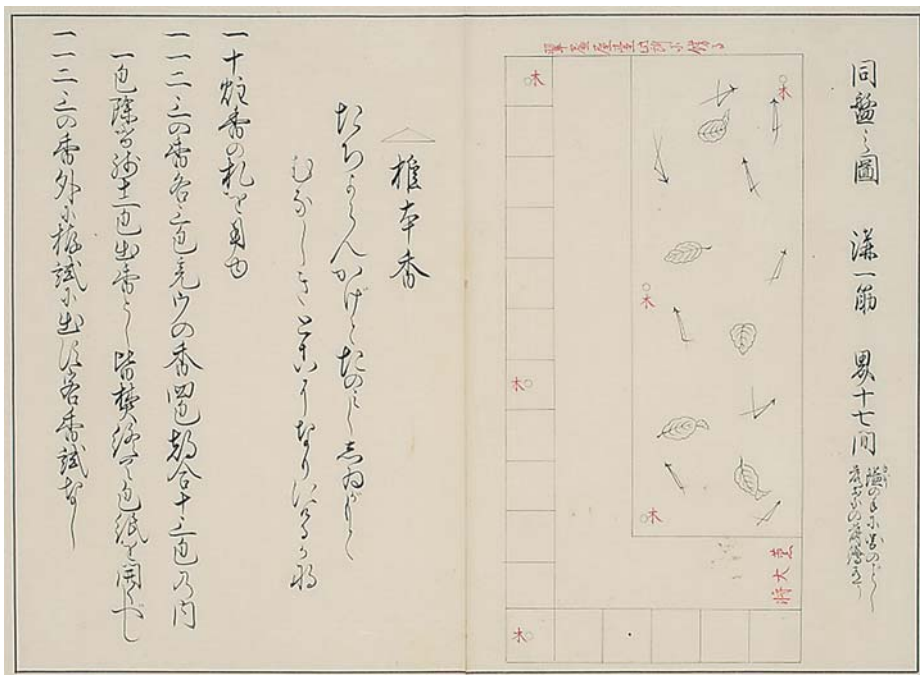 同盤之圖　溝一筋　界十七间
木
木
木
木
木
木
椎本香
たちよらんかげとたのみし志ゐがもと
むなしきとこになりにけるかな
一十炷香の札を用ゆ
一一二三の香各三包充ウの香四包都合十三包乃内
一包除 残十二包出香とし皆焚終て包紙を開くべし
一一二三の香外に 試に出す客香試なし